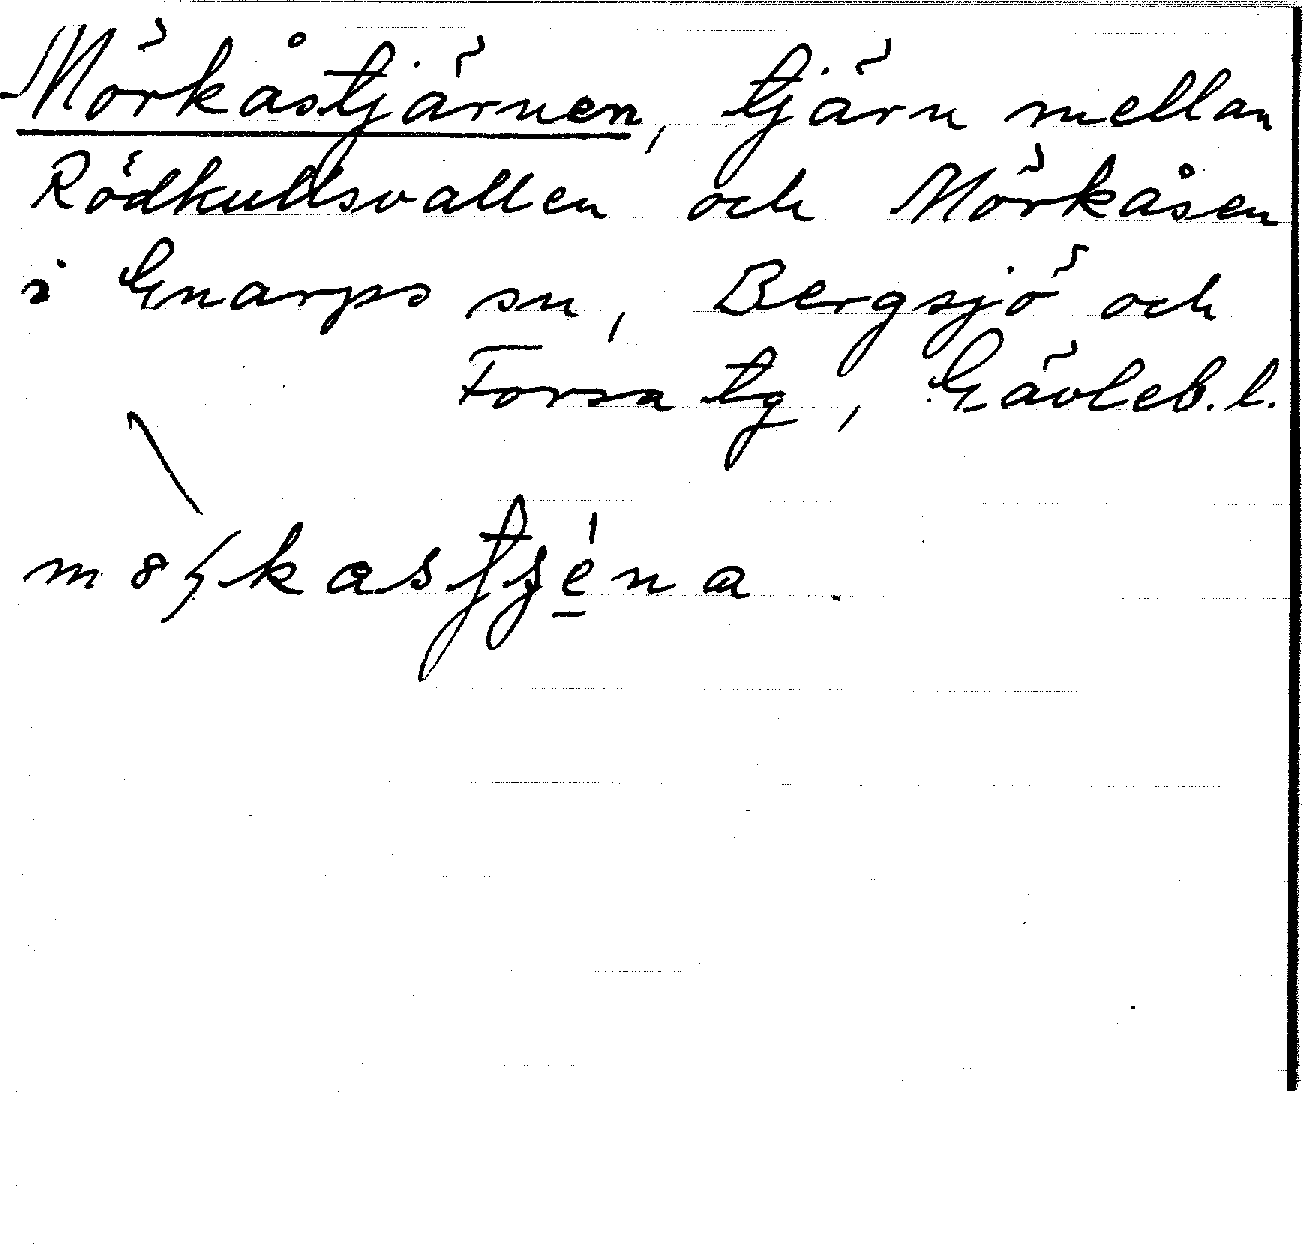 Mörkåstjärnen, tjärn mellan
Rödkullsvallen och Mörkåsen
i Gnarps sn, Bergsjö och
Forsa tg, Gävleb. l.